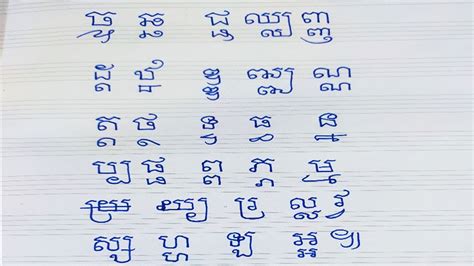 ច្ច ឆ្ឆ ជ្ជ ឈ្ឈ ញ្ញ
ដ្ដ ឋ្ឋ ឌ្ឌ ឍ្ឍ ណ្ណ
ត្ត ថ្ថ ទ្ទ ធ្ធ ន្ន
ប្ប ផ្ផ ព្ព ភ្ភ ម្ម
យ្យ រ្រ ល្ល វ្វ
ស្ស ហ្ហ ឡ អ្អ